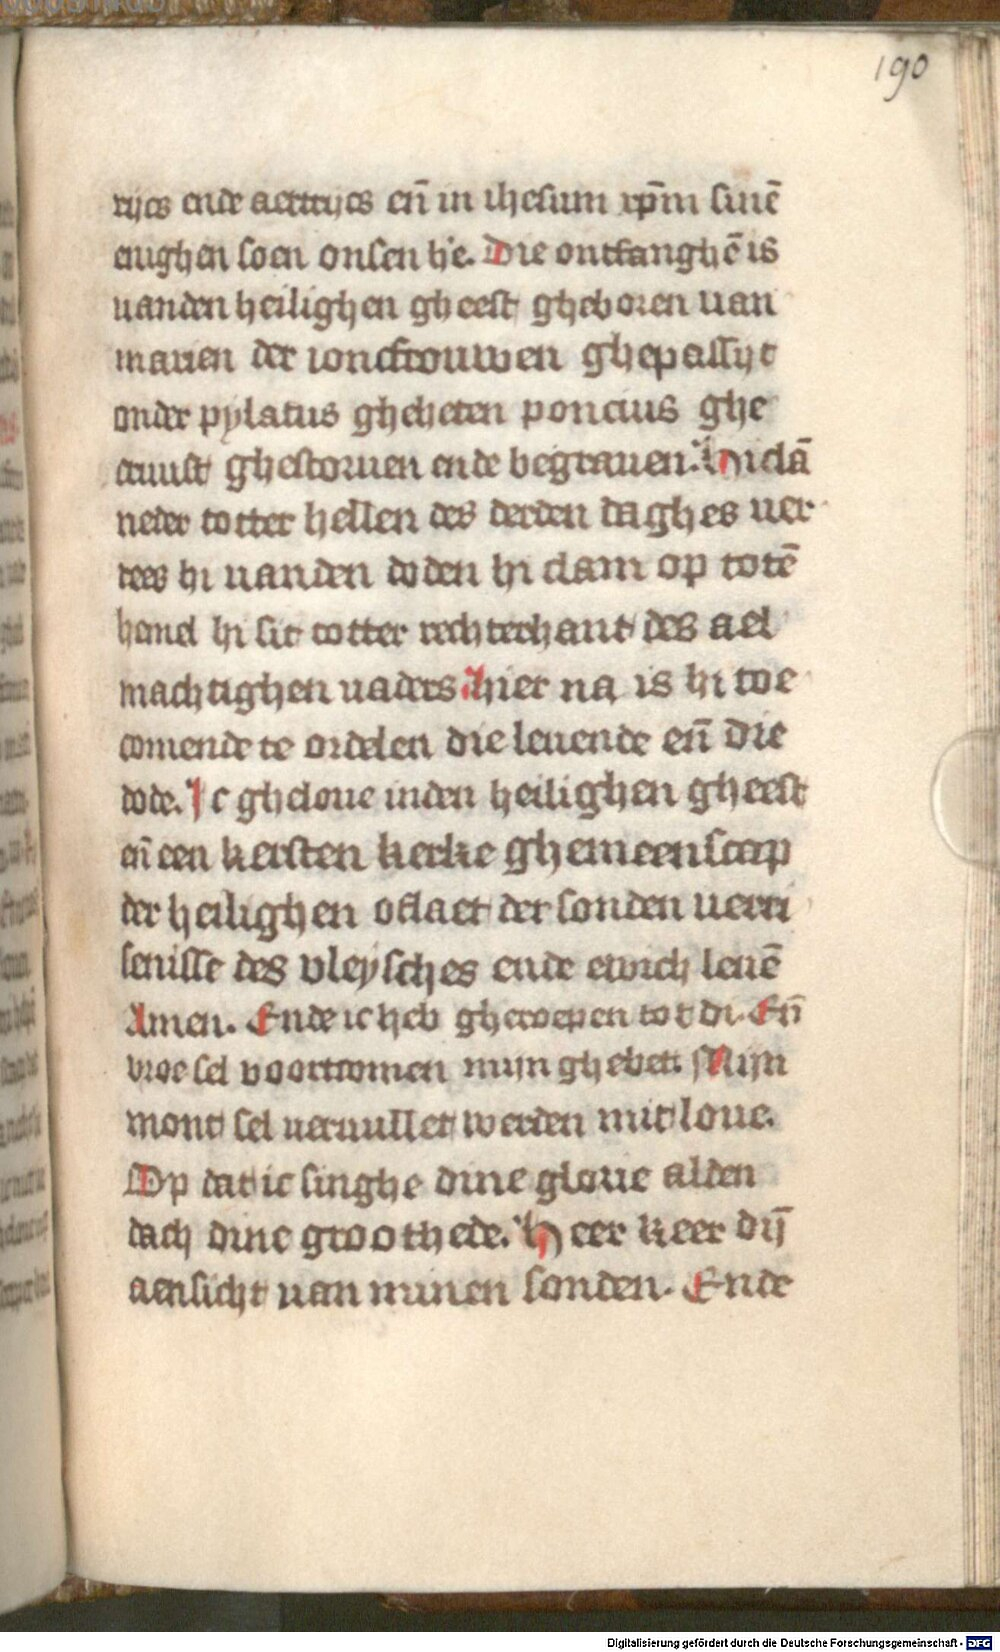 190
rijcs ende aertrijcs en̄ in ihesum xp̄m sinē
enighen soen onsen he'. Die ontfanghē is
uanden heilighen gheest gheboren uan
marien der ioncfrouwen ghepassijt
onder pylatus gheheten poncius ghe
cruust ghestoruen ende begrauen. Hi clā
neder totter hellen des derden daghes uer
rees hi uanden doden hi clam op totē
hemel hi sit totter rechterhant des ael
machtighen uaders. hier na is hi toe
comende te ordelen die leuende en̄ die
dode. Ic gheloue inden heilighen gheest
en̄ een kersten kerke ghemeenscap
der heilighen oflaet der sonden uerri
senisse des vleysches ende ewich leuē
Amen. Ende ic heb gheroepen tot di. En̄
vroe sel voortcomen mijn ghebet. Mijn
mont sel ueruullet werden mit loue.
Op dat ic singhe dine glorie alden
dach dine groothede. Heer keer dij̄
aensicht uan minen sonden. Ende
Digitalisierung gefördert durch die Deutsche Forschungsgemeinschaft - DFG